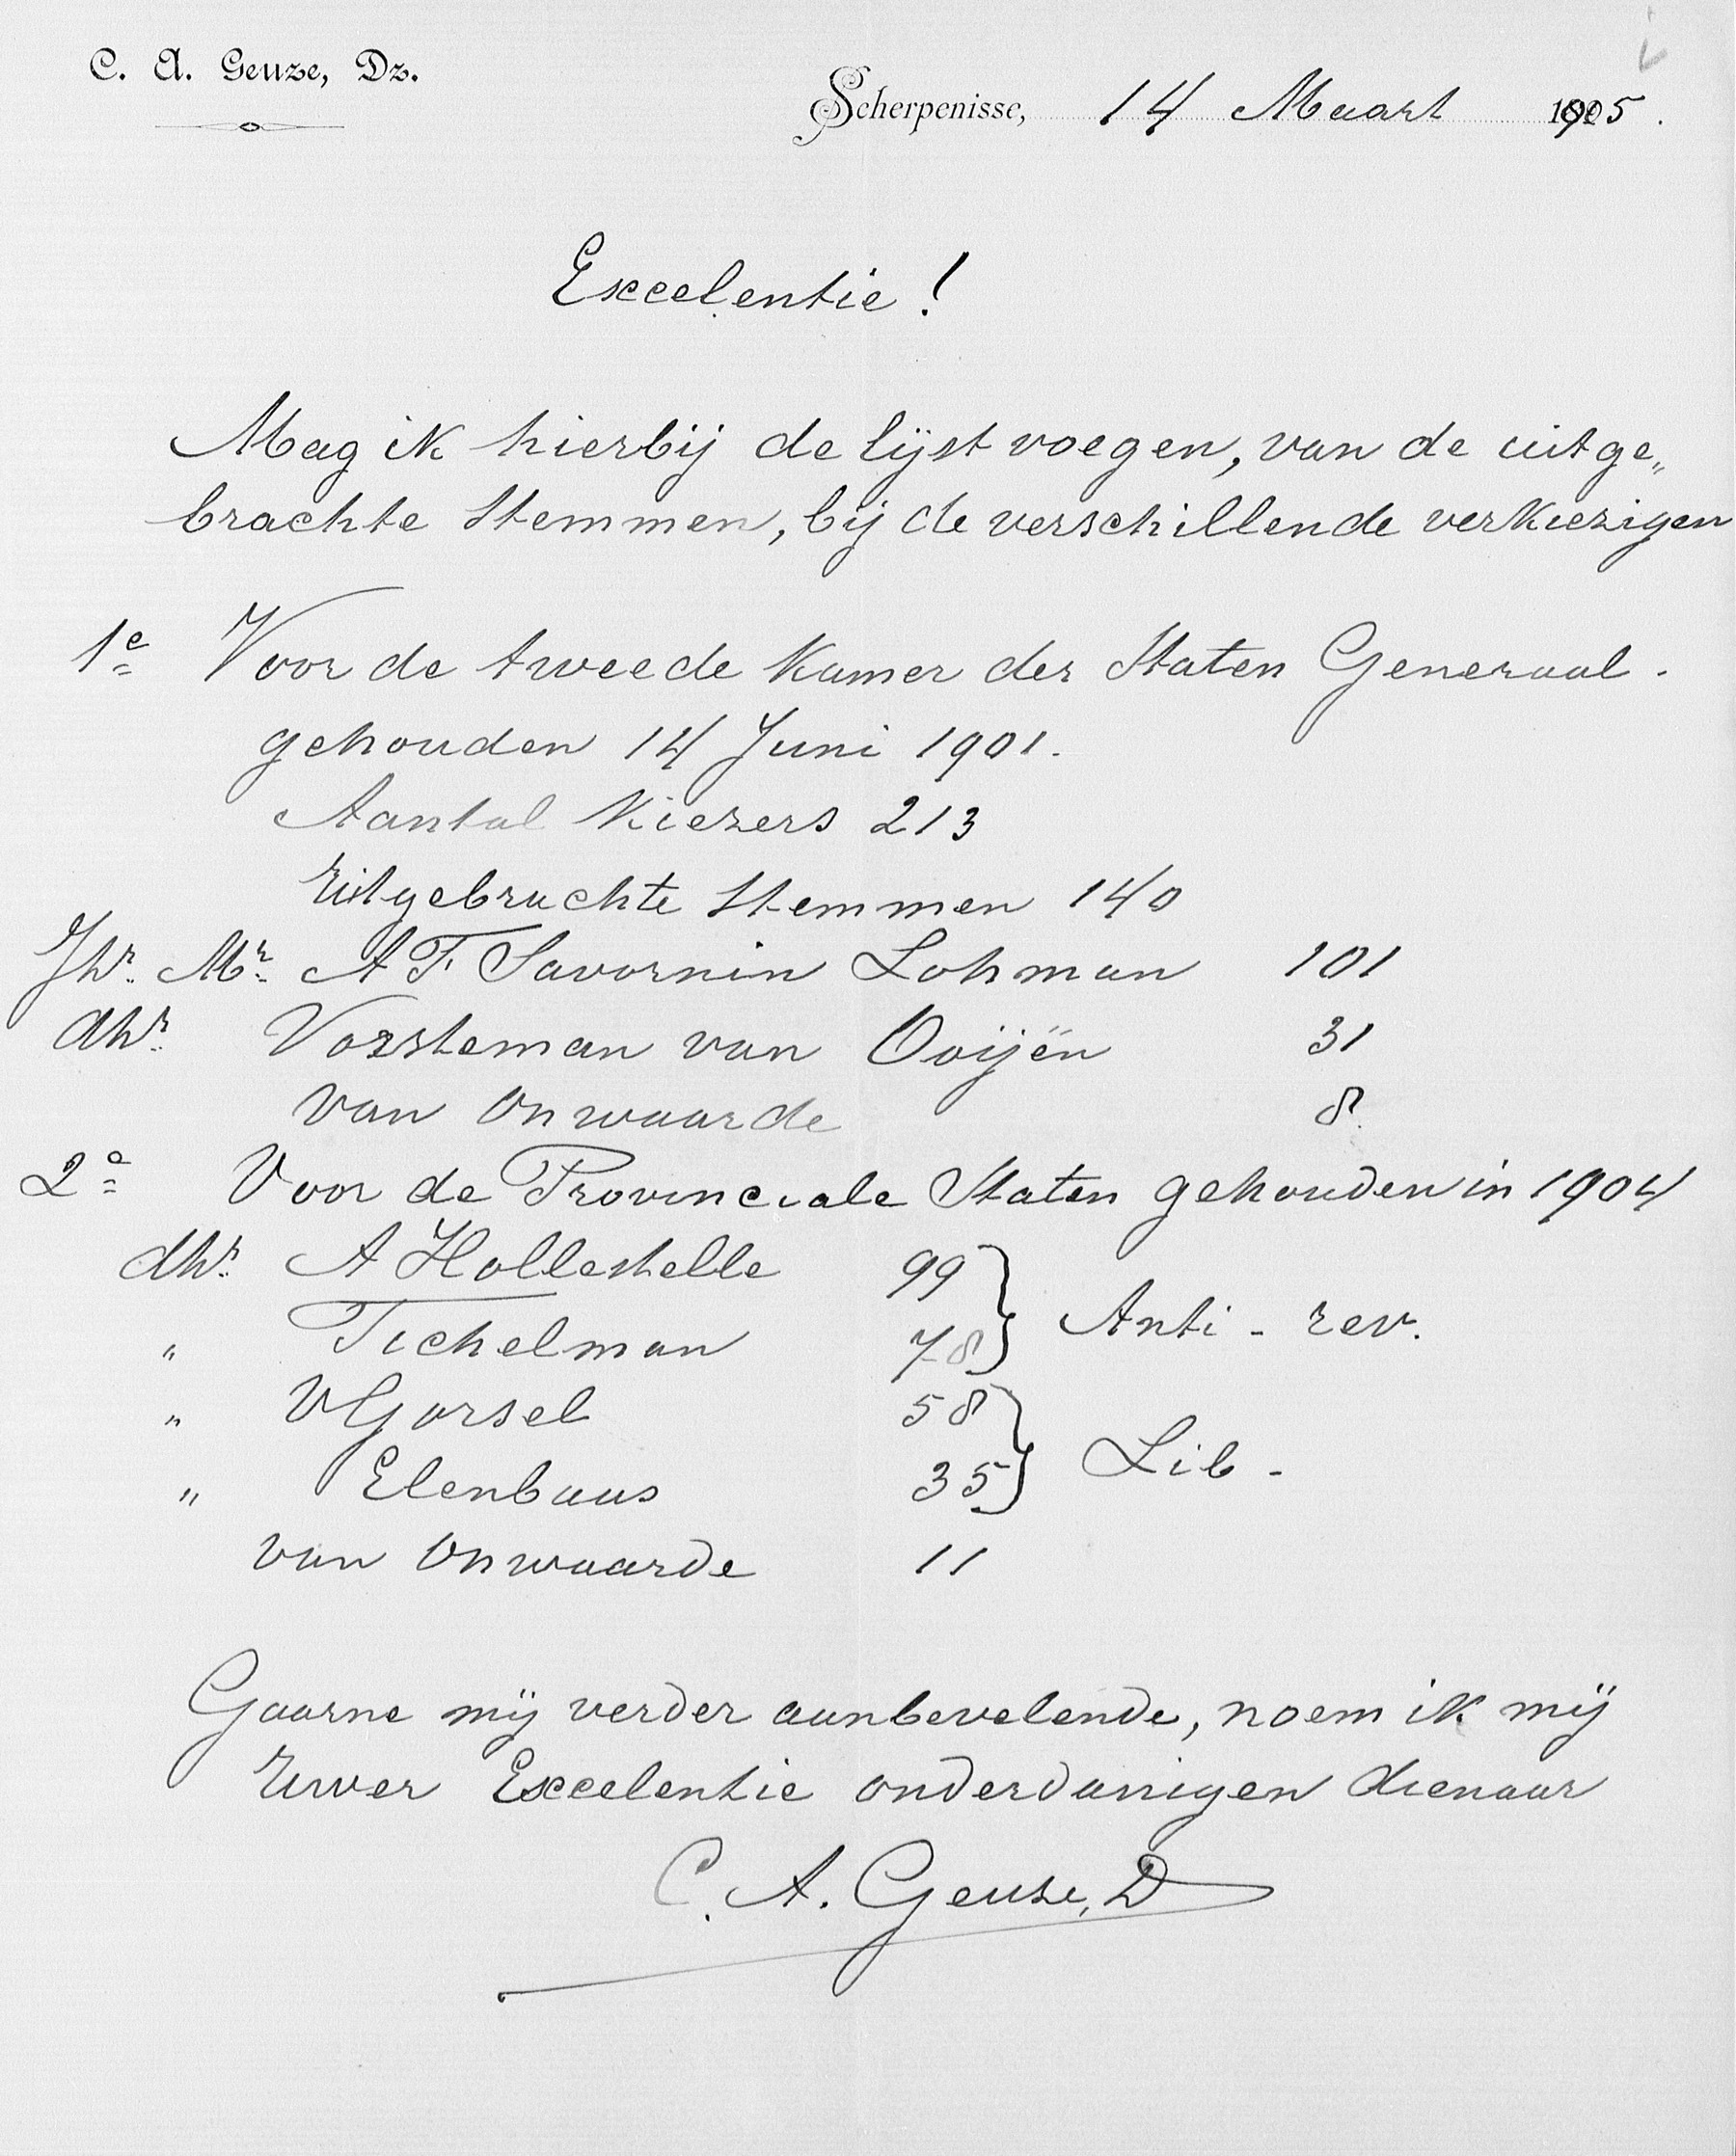 C. A. Geuze, Dz.
Scherpenisse, 14 Maart 1905.
Excelentie!
Mag ik hierbij de lijst voegen, van de uitge„
brachte stemmen, bij de verschillende verkiezigen
1e Voor de tweede Kamer der Staten Generaal.
gehouden 14 Juni 1901.
Aantal Kiezers 213
Uitgebrachte stemmen 140
Jhr. Mr. A F Savornin Lohman 101
dhr. Vorsteman van Ooijën 31
van Onwaarde 8.
2e Voor de Provinciale Staten gehouden in 1904
dhr. A Hollestelle 99
„ Tichelman 78 } Anti-rev.
„ V Gorsel 58
„ Elenbaas 35 } Lib-
van Onwaarde 11
Gaarne mij verder aanbevelende, noem ik mij
Uwer Excelentie onderdanigen dienaar
C. A. Geuze, D